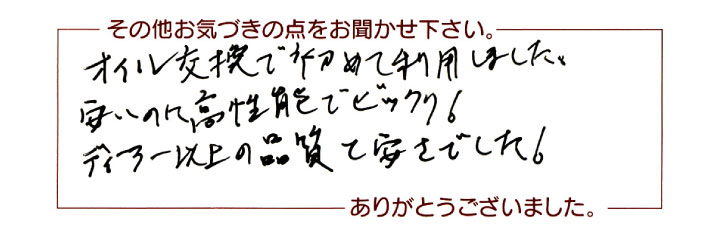 その他お気づきの点をお聞かせ下さい。
オイル交換で初めて利用しました。
安いのに高性能でビックリ!
ディーラー以上の品質で安さでした!
ありがとうございました。